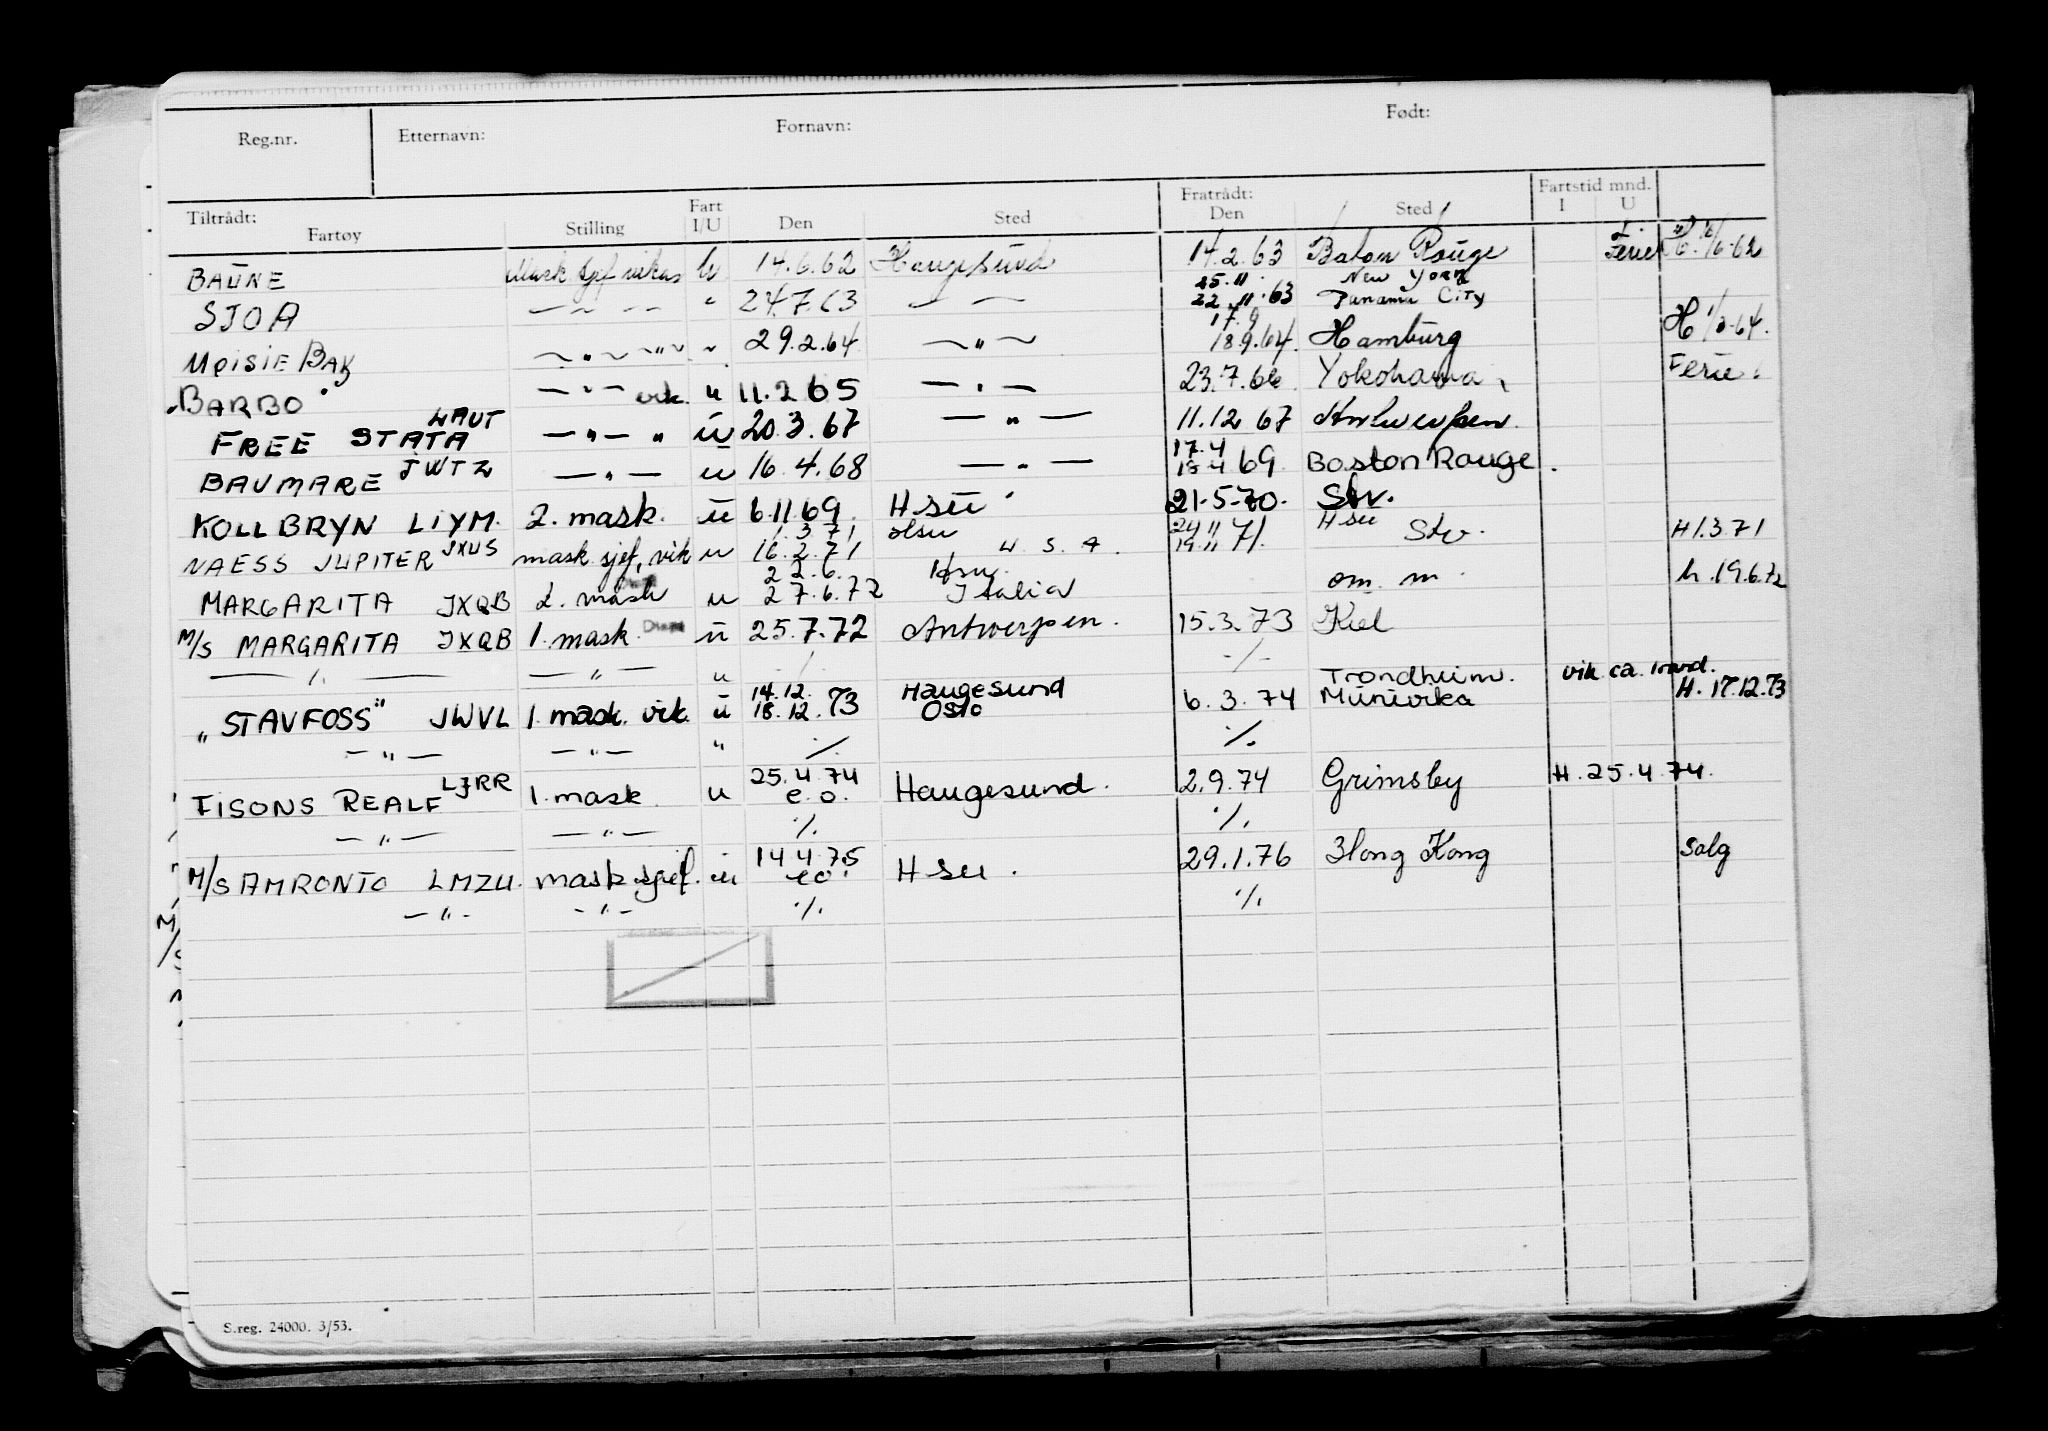 Reg.nr. Etternavn: Fornavn: Født:
Tiltrådt: Fartøy Stilling Fart I/U Den Sted Fratrådt: Den Sted Fartstid mnd. I U
BAUNE Mask sjef vikar U 14.6.62 Haugesund 14.2.63 Baton Rouge Ferie 6-62
25.11 New York
SJOA — " — " 24.7.63 — " — 22.11.63 Panama City
17.9
MOISIE BAY — " — " — " 29.2.64 — " — 18.9.64. Hamburg H 1/3-64.
"BARBO" — " — vik. u 11.2.65 — " — 23.7.66 Yokohama Ferie.
FREE STATA LAUT — " — " ū 20.3.67 — " — 11.12.67 Antwerpen.
17.4
BAUMARE JWTZ — " — ū 16.4.68 — " — 18.4 69. Boston Rouge.
KOLLBRYN LIYM. 2. mask. ū 6.11.69. Hsu 21.5-70. Stv.
1.3.71 Hsu 24.11 Hsu
NAESS JUPITER JXUS mask.sjef, vik u 16.2.71 U.S.A. 19.11 71. Stv. H 1.3.71
22.6. Hsu.
MARGARITA JXQB 2. mask u 27.6.72 Italia om. m. h. 19.6.72
M/S MARGARITA JXQB 1. mask. ū 25.7.72 Antwerpen. 15.3.73 Kiel
— " — — " — u ./. ./.
14.12. Haugesund Trondheim. vik ca. 1 mnd.
"STAVFOSS" JWVL 1. mask. vik. ū 18.12.73 Oslo 6.3.74 H. 17.12.73
— " — — " — " ./. ./.
25.4.74
FISONS REALF LJRR 1. mask u e.o. Haugesund. 2.9.74 Grimsby H. 25.4.74.
— " — — " — ./. ./.
14.4.75
M/S AMRONTO LMZU. mask.sjef. ū eo. Hsu. 29.1.76 Hong Kong Salg
— " — — " — ./. ./.
S.reg. 24000. 3/53.